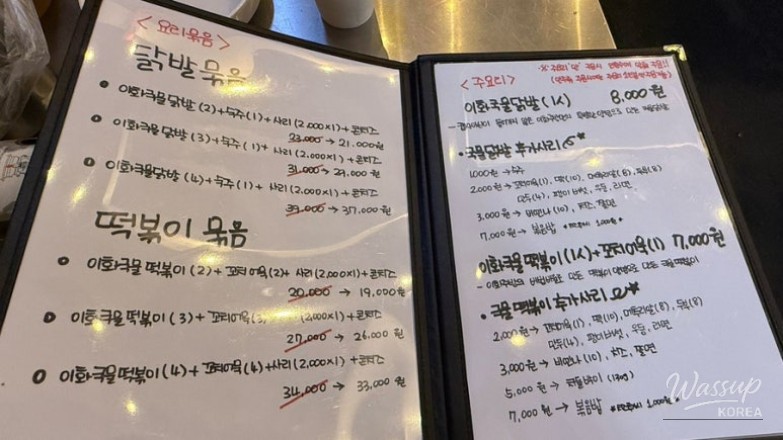 <요리묶음>
닭발 묶음
이화국물닭발(2)+숙주(1)+사리(2,000×1)+콘치즈
23,000 → 21,000원
이화국물닭발(3)+숙주(1)+사리(2,000×1)+콘치즈
31,000 → 29,000원
이화국물닭발(4)+숙주(1)+사리(2,000×1)+콘치즈
39,000 → 37,000원
떡볶이 묶음
이화국물 떡볶이(2)+꼬치어묵(2)+사리(2,000×1)+콘치즈
20,000 → 19,000원
이화국물 떡볶이(3)+꼬치어묵(3)+ (2,000×1)+콘치즈
27,000 → 26,000원
이화국물 떡볶이(4)+꼬치어묵(4)+사리(2,000×1)+콘치즈
34,000 → 33,000원
<주요리>
이화국물닭발(1人) 8,000원
국물닭발 추가사리
1000원 → 숙주
2,000원 → 꼬치어묵(1), 떡(10), 메추리알(8), 두부(8)
만두(4), 팽이버섯, 우동, 라면
3,000원 → 비엔나(10), 치즈, 쫄면
7,000원 → 볶음밥
이화국물떡볶이(1人)+꼬치어묵(1) 7,000원
국물 떡볶이 추가사리
2,000원 → 꼬치어묵(1), 떡(10), 메추리알(8), 두부(8)
만두(4), 팽이버섯, 우동, 라면
3,000원 → 비엔나(10), 치즈, 쫄면
5,000원 →
7,000원 → 볶음밥
Wassup
KOREA